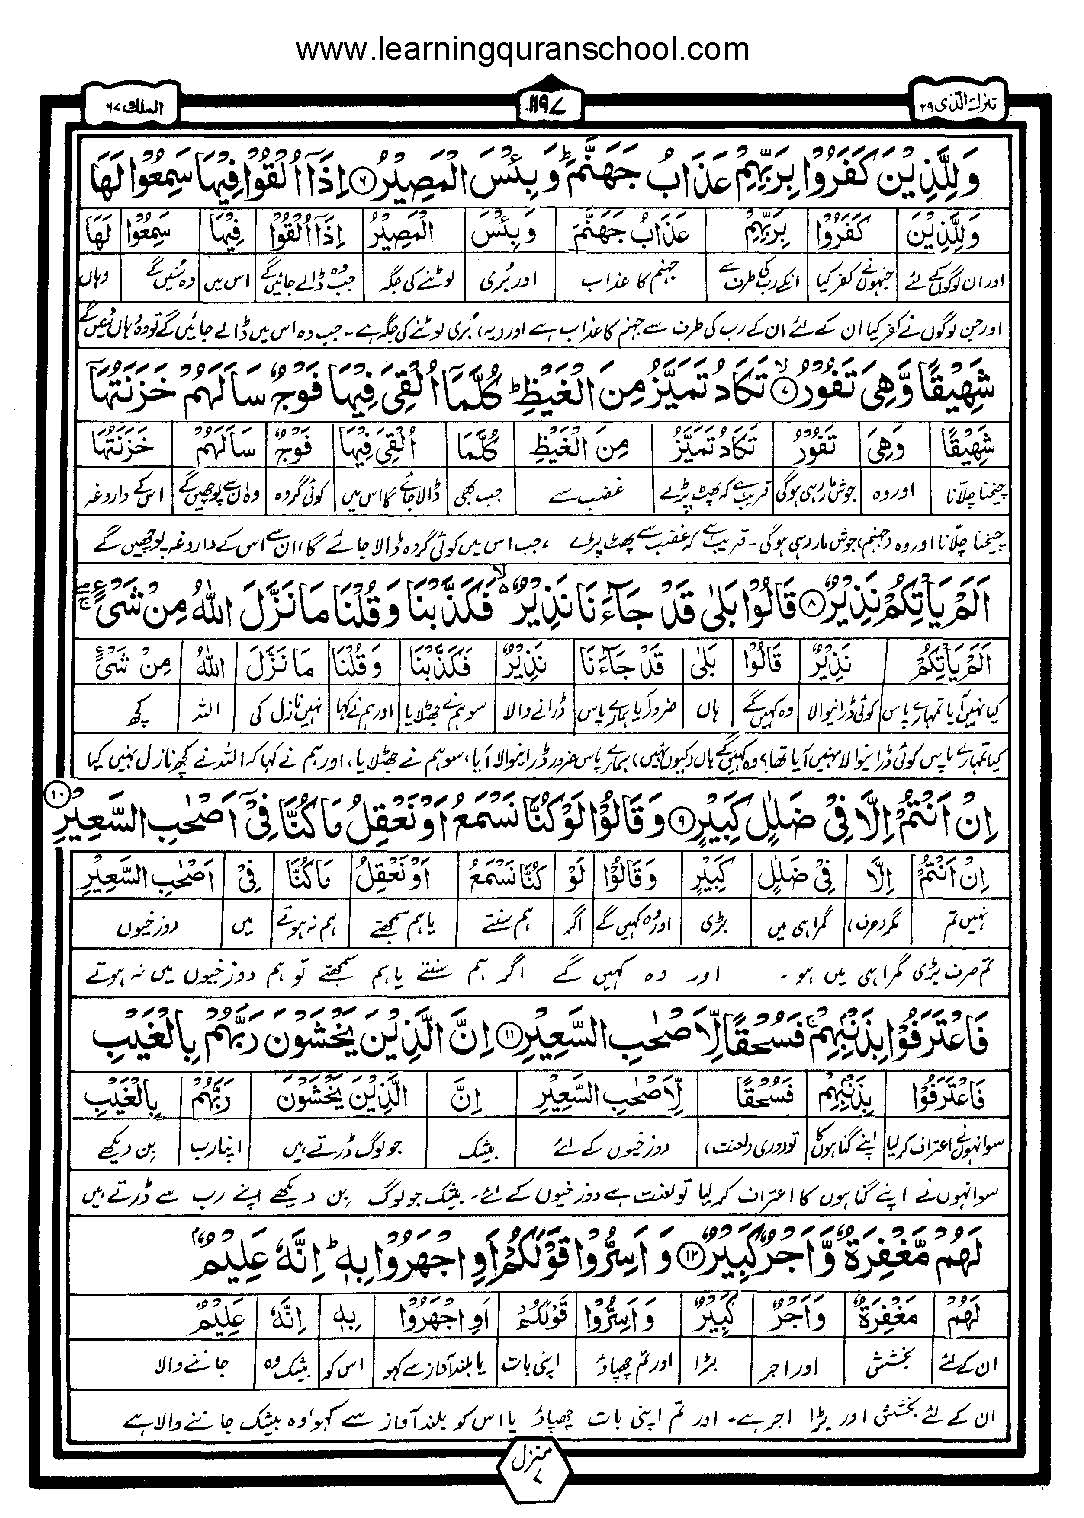 www.learningquranschool.com
تبٰرك الذی ۲۹
۱۱۹۷
الملك ۶۷
وَلِلَّذِيْنَ كَفَرُوْا بِرَبِّهِمْ عَذَابُ جَهَنَّمَ ؕ وَبِئْسَ الْمَصِيْرُ ۶ اِذَآ اُلْقُوْا فِيْهَا سَمِعُوْا لَهَا
وَلِلَّذِيْنَ كَفَرُوْا بِرَبِّهِمْ عَذَابُ جَهَنَّمَ وَبِئْسَ الْمَصِيْرُ اِذَآ اُلْقُوْا فِيْهَا سَمِعُوْا لَهَا
اور ان لوگوں کے لئے جنہوں نے کفر کیا انکے رب کی طرف سے جہنم کا عذاب اور بُری لوٹنے کی جگہ جب وہ ڈالے جائیں گے اس میں وہ سُنیں گے وہاں
اور جن لوگوں نے کفر کیا ان کے لئے ان کے رب کی طرف سے جہنم کا عذاب ہے اور (یہ) بُری لوٹنے کی جگہ ہے۔ جب وہ اس میں ڈالے جائیں گے تو وہاں سُنیں گے
شَهِيْقًا وَّهِيَ تَفُوْرُ ۷ۙ تَكَادُ تَمَيَّزُ مِنَ الْغَيْظِ ؕ كُلَّمَآ اُلْقِيَ فِيْهَا فَوْجٌ سَاَلَهُمْ خَزَنَتُهَا
شَهِيْقًا وَهِيَ تَفُوْرُ تَكَادُ تَمَيَّزُ مِنَ الْغَيْظِ كُلَّمَا اُلْقِيَ فِيْهَا فَوْجٌ سَاَلَهُمْ خَزَنَتُهَا
چیخنا چلّانا اور وہ جوش مار رہی ہوگی قریب ہے کہ پھٹ پڑے غضب سے جب بھی ڈالا جائے گا اس میں کوئی گروہ وہ ان سے پوچھیں گے اس کے داروغہ
چیخنا چلّانا اور وہ (جہنم) جوش مار رہی ہوگی۔ قریب ہے کہ غضب سے پھٹ پڑے، جب اس میں کوئی گروہ ڈالا جائے گا، ان سے اس کے داروغہ پوچھیں گے
اَلَمْ يَاْتِكُمْ نَذِيْرٌ ۸ قَالُوْا بَلٰى قَدْ جَآءَنَا نَذِيْرٌ ۙ فَكَذَّبْنَا وَقُلْنَا مَا نَزَّلَ اللّٰهُ مِنْ شَيْءٍ ۚۖ
اَلَمْ يَاْتِكُمْ نَذِيْرٌ قَالُوْا بَلٰى قَدْ جَآءَنَا نَذِيْرٌ فَكَذَّبْنَا وَقُلْنَا مَا نَزَّلَ اللّٰهُ مِنْ شَيْءٍ
کیا نہیں آیا تمہارے پاس کوئی ڈرانیوالا وہ کہیں گے ہاں ضرور آیا ہمارے پاس ڈرانے والا سو ہم نے جھٹلایا اور ہم نے کہا نہیں نازل کی اللہ کچھ
کیا تمہارے پاس کوئی ڈرانیوالا نہیں آیا تھا؟ وہ کہیں گے ہاں (کیوں نہیں) ہمارے پاس ضرور ڈرانیوالا آیا، سو ہم نے جھٹلایا، اور ہم نے کہا کہ اللہ نے کچھ نازل نہیں کیا
اِنْ اَنْتُمْ اِلَّا فِيْ ضَلٰلٍ كَبِيْرٍ ۹ وَقَالُوْا لَوْ كُنَّا نَسْمَعُ اَوْ نَعْقِلُ مَا كُنَّا فِيْٓ اَصْحٰبِ السَّعِيْرِ ۱۰
اِنْ اَنْتُمْ اِلَّا فِيْ ضَلٰلٍ كَبِيْرٍ وَقَالُوْا لَوْ كُنَّا نَسْمَعُ اَوْ نَعْقِلُ مَا كُنَّا فِيْٓ اَصْحٰبِ السَّعِيْرِ
نہیں تم مگر (صرف) گمراہی میں بڑی اور وہ کہیں گے اگر ہم سنتے یا ہم سمجھتے ہم نہ ہوتے میں دوزخیوں
تم صرف بڑی گمراہی میں ہو۔ اور وہ کہیں گے اگر ہم سنتے یا ہم سمجھتے تو ہم دوزخیوں میں نہ ہوتے
فَاعْتَرَفُوْا بِذَنْۢبِهِمْ ۚ فَسُحْقًا لِّاَصْحٰبِ السَّعِيْرِ ۱۱ اِنَّ الَّذِيْنَ يَخْشَوْنَ رَبَّهُمْ بِالْغَيْبِ
فَاعْتَرَفُوْا بِذَنْۢبِهِمْ فَسُحْقًا لِّاَصْحٰبِ السَّعِيْرِ اِنَّ الَّذِيْنَ يَخْشَوْنَ رَبَّهُمْ بِالْغَيْبِ
سو انہوں نے اعتراف کر لیا اپنے گناہوں کا تو دوری (لعنت) دوزخیوں کے لئے بیشک جو لوگ ڈرتے ہیں اپنا رب بن دیکھے
سو انہوں نے اپنے گناہوں کا اعتراف کر لیا تو لعنت ہے دوزخیوں کے لئے۔ بیشک جو لوگ بِن دیکھے اپنے رب سے ڈرتے ہیں
لَهُمْ مَّغْفِرَةٌ وَّاَجْرٌ كَبِيْرٌ ۱۲ وَاَسِرُّوْا قَوْلَكُمْ اَوِ اجْهَرُوْا بِهٖ ؕ اِنَّهٗ عَلِيْمٌۢ
لَهُمْ مَغْفِرَةٌ وَاَجْرٌ كَبِيْرٌ وَاَسِرُّوْا قَوْلَكُمْ اَوِ اجْهَرُوْا بِهٖ اِنَّهٗ عَلِيْمٌ
ان کے لئے بخشش اور اجر بڑا اور تم چھپاؤ اپنی بات یا بلند آواز سے کہو اس کو بیشک وہ جاننے والا
ان کے لئے بخشش اور بڑا اجر ہے۔ اور تم اپنی بات چھپاؤ یا اس کو بلند آواز سے کہو، وہ بیشک جاننے والا ہے
منزل
۷